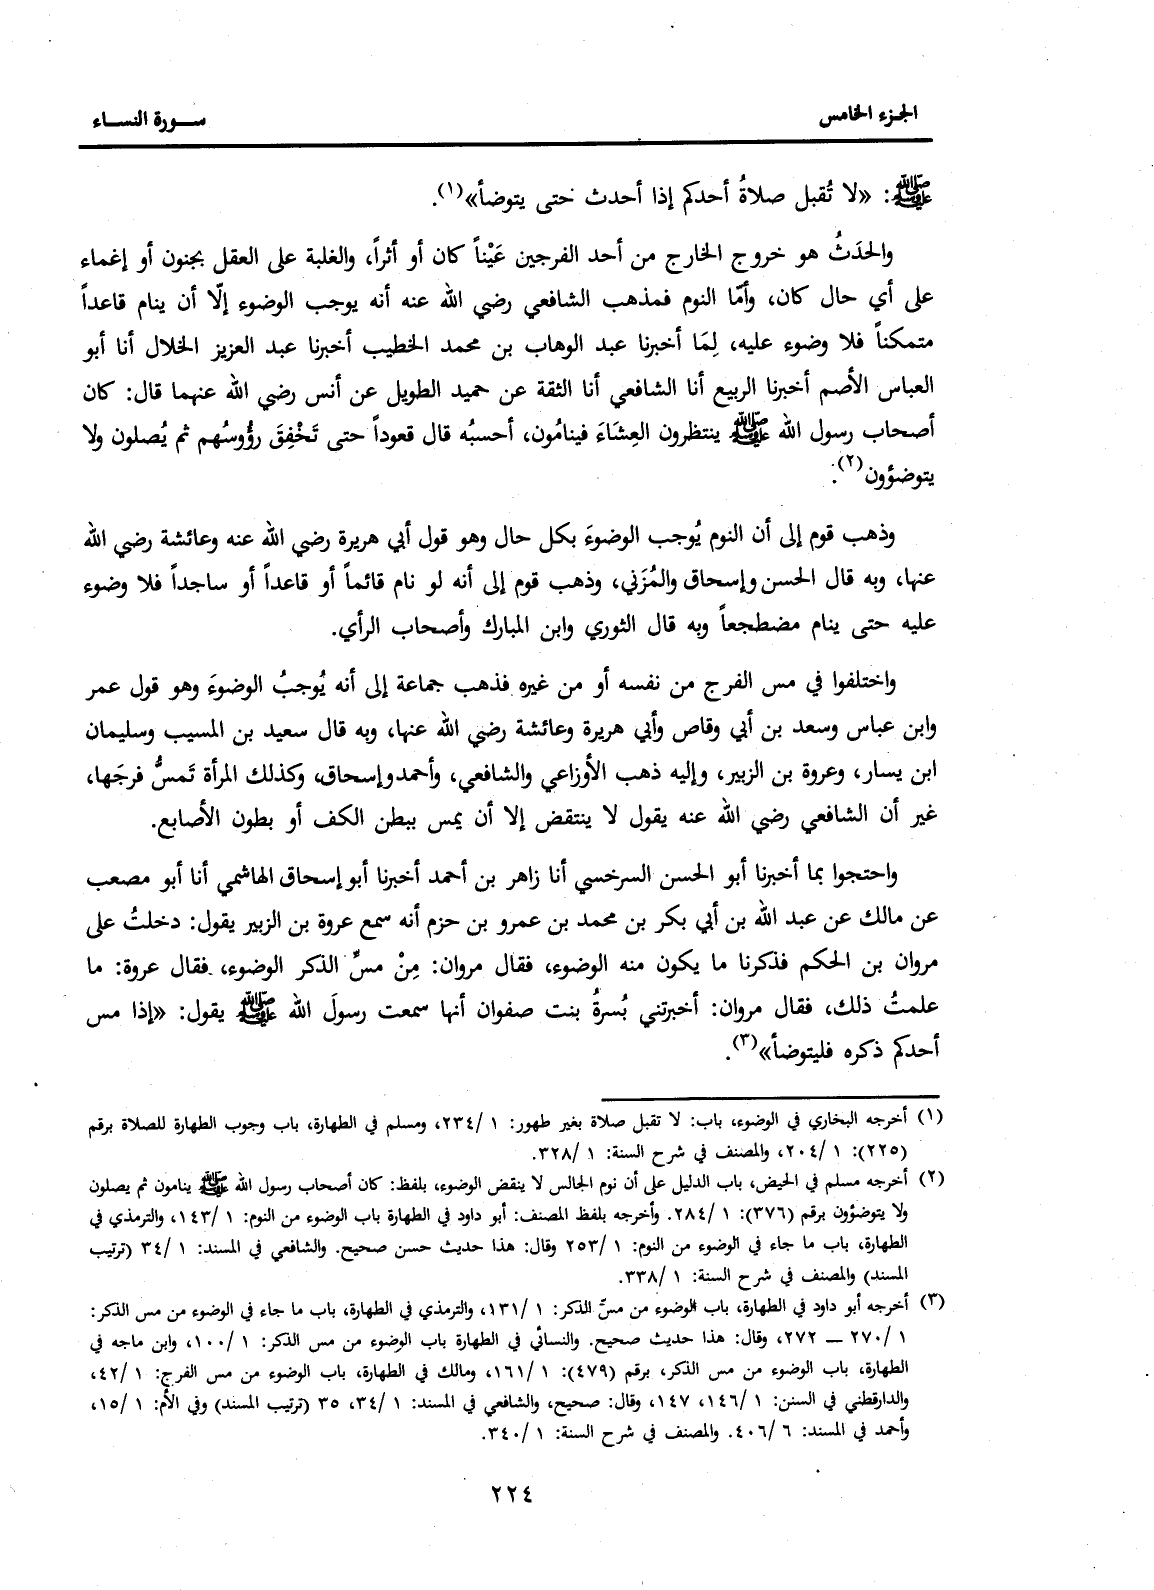 الجزء الخامس
سورة النساء
ﷺ: «لا تُقبل صلاةُ أحدكم إذا أحدث حتى يتوضأ»(١).
والحدَثُ هو خروج الخارج من أحد الفرجين عَيْناً كان أو أثراً، والغلبة على العقل بجنون أو إغماء
على أي حال كان، وأمّا النوم فمذهب الشافعي رضي الله عنه أنه يوجب الوضوء إلّا أن ينام قاعداً
متمكناً فلا وضوء عليه، لِمَا أخبرنا عبد الوهاب بن محمد الخطيب أخبرنا عبد العزيز الخلال أنا أبو
العباس الأصم أخبرنا الربيع أنا الشافعي أنا الثقة عن حميد الطويل عن أنس رضي الله عنهما قال: كان
أصحاب رسول الله ﷺ ينتظرون العِشَاءَ فينامُون، أحسبُه قال قعوداً حتى تَخْفِقَ رؤُوسُهم ثم يُصلون ولا
يتوضؤون(٢).
وذهب قوم إلى أن النوم يُوجب الوضوءَ بكل حال وهو قول أبي هريرة رضي الله عنه وعائشة رضي الله
عنها، وبه قال الحسن وإسحاق والمُزَني، وذهب قوم إلى أنه لو نام قائماً أو قاعداً أو ساجداً فلا وضوء
عليه حتى ينام مضطجعاً وبه قال الثوري وابن المبارك وأصحاب الرأي.
واختلفوا في مس الفرج من نفسه أو من غيره فذهب جماعة إلى أنه يُوجبُ الوضوءَ وهو قول عمر
وابن عباس وسعد بن أبي وقاص وأبي هريرة وعائشة رضي الله عنها، وبه قال سعيد بن المسيب وسليمان
ابن يسار، وعروة بن الزبير، وإليه ذهب الأوزاعي والشافعي، وأحمد وإسحاق، وكذلك المرأة تَمسُّ فرجَها،
غير أن الشافعي رضي الله عنه يقول لا ينتقض إلا أن يمس ببطن الكف أو بطون الأصابع.
واحتجوا بما أخبرنا أبو الحسن السرخسي أنا زاهر بن أحمد أخبرنا أبو إسحاق الهاشمي أنا أبو مصعب
عن مالك عن عبد الله بن أبي بكر بن محمد بن عمرو بن حزم أنه سمع عروة بن الزبير يقول: دخلتُ على
مروان بن الحكم فذكرنا ما يكون منه الوضوء، فقال مروان: مِنْ مسِّ الذكر الوضوء، فقال عروة: ما
علمتُ ذلك، فقال مروان: أخبرتني بُسرةُ بنت صفوان أنها سمعت رسولَ الله ﷺ يقول: «إذا مس
أحدكم ذكره فليتوضأ»(٣).
(١) أخرجه البخاري في الوضوء، باب: لا تقبل صلاة بغير طهور: ١ /٢٣٤، ومسلم في الطهارة، باب وجوب الطهارة للصلاة برقم
(٢٢٥): ١ /٢٠٤، والمصنف في شرح السنة: ١ /٣٢٨.
(٢) أخرجه مسلم في الحيض، باب الدليل على أن نوم الجالس لا ينقض الوضوء، بلفظ: كان أصحاب رسول الله ﷺ ينامون ثم يصلون
ولا يتوضؤون برقم (٣٧٦): ١ /٢٨٤. وأخرجه بلفظ المصنف: أبو داود في الطهارة باب الوضوء من النوم: ١ /١٤٣، والترمذي في
الطهارة، باب ما جاء في الوضوء من النوم: ١ /٢٥٣ وقال: هذا حديث حسن صحيح. والشافعي في المسند: ١ /٣٤ (ترتيب
المسند) والمصنف في شرح السنة: ١ /٣٣٨.
(٣) أخرجه أبو داود في الطهارة، باب الوضوء من مسّ الذكر: ١ /١٣١، والترمذي في الطهارة، باب ما جاء في الوضوء من مس الذكر:
١ /٢٧٠ — ٢٧٢، وقال: هذا حديث صحيح. والنسائي في الطهارة باب الوضوء من مس الذكر: ١ /١٠٠، وابن ماجه في
الطهارة، باب الوضوء من مس الذكر، برقم (٤٧٩): ١ /١٦١، ومالك في الطهارة، باب الوضوء من مس الفرج: ١ /٤٢،
والدارقطني في السنن: ١ /١٤٦، ١٤٧، وقال: صحيح، والشافعي في المسند: ١ /٣٤، ٣٥ (ترتيب المسند) وفي الأم: ١ /١٥،
وأحمد في المسند: ٦ /٤٠٦. والمصنف في شرح السنة: ١ /٣٤٠.
٢٢٤